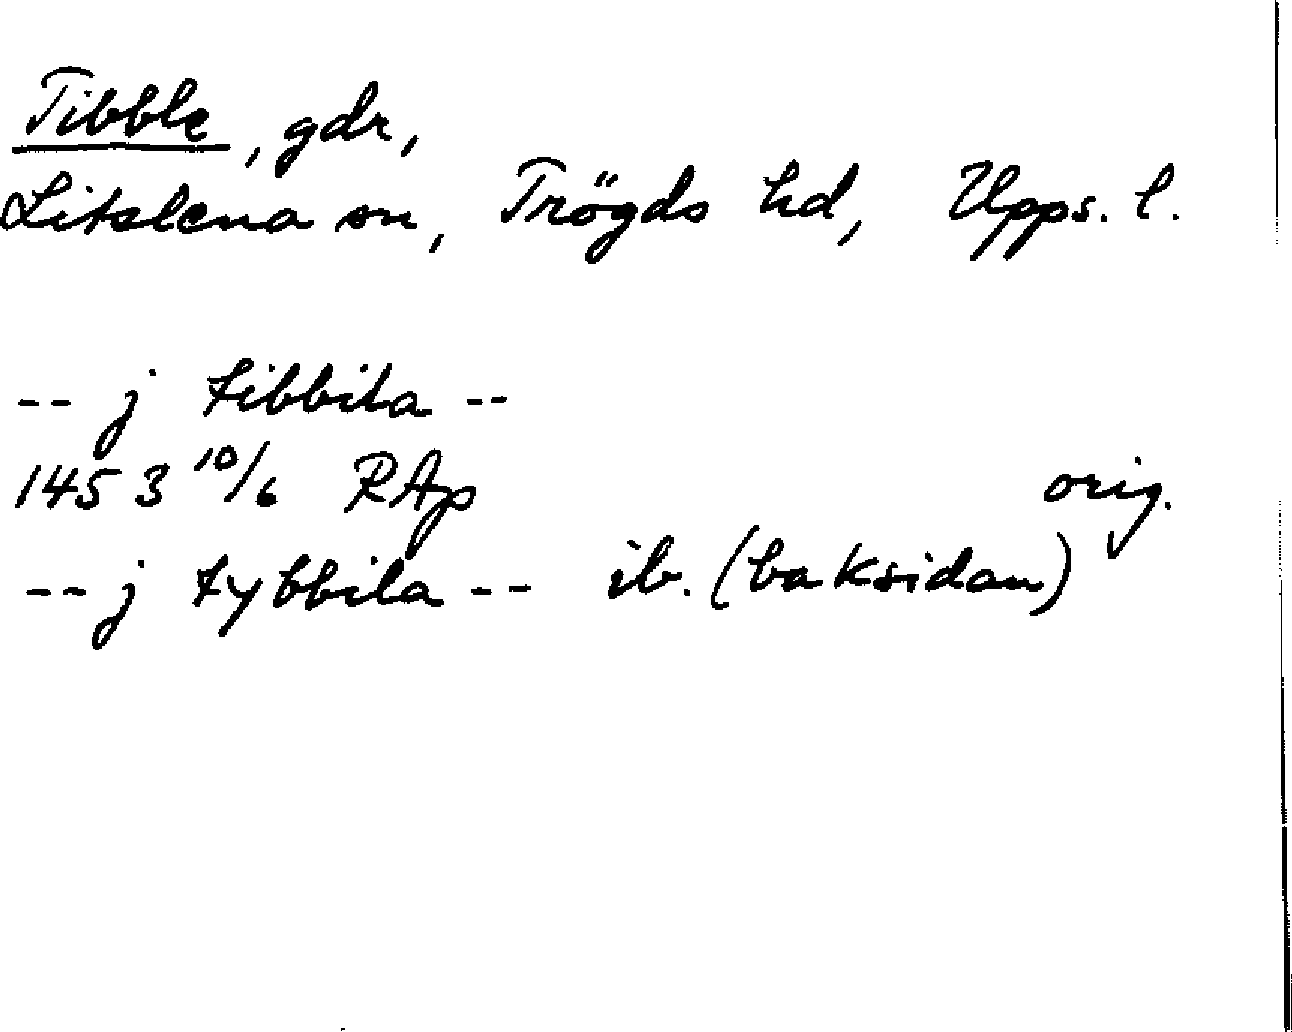 Tibble, gdr,
Litslena sn, Trögds hd, Upps. l.
-- j tibbila --
1453 10/6 RAp orig.
-- j tybbila -- ib. (baksidan)